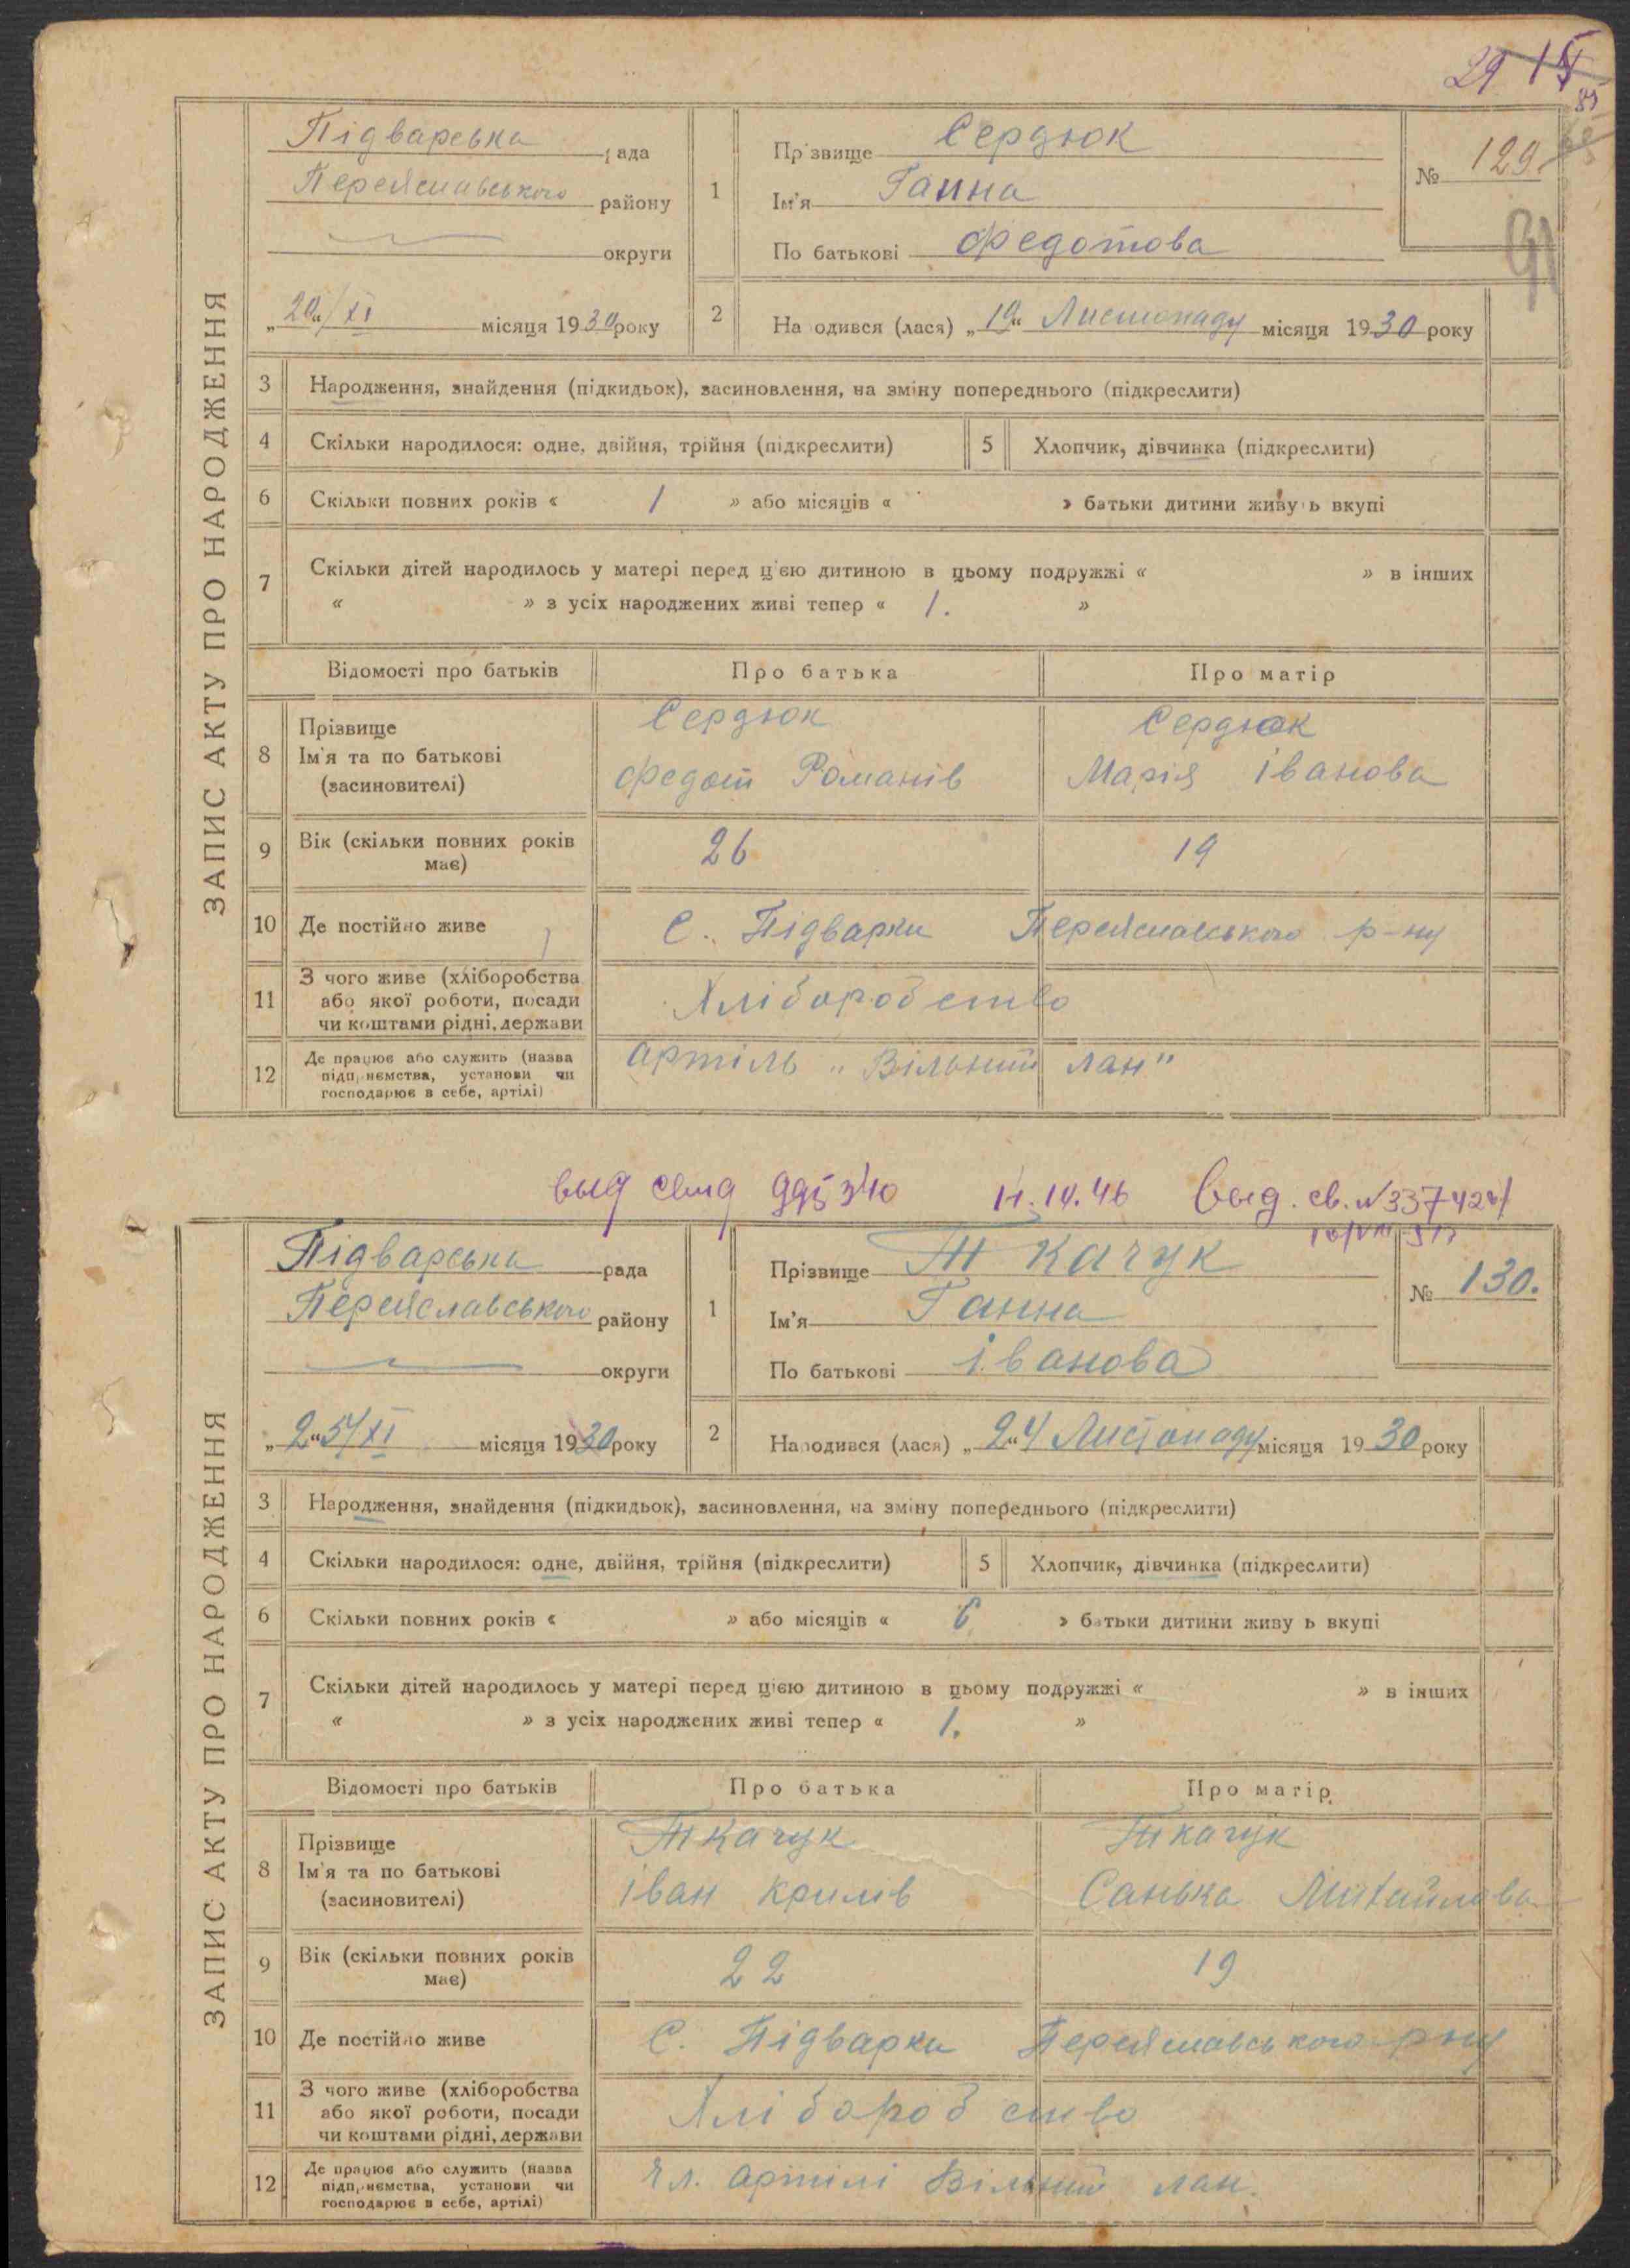 29 15
85
ЗАПИС АКТУ ПРО НАРОДЖЕННЯ
Підварська рада
Переяславського району
округи
„20“/XI місяця 1930 року
1
Прізвище Сердюк
Ім'я Ганна
По батькові Федотова
№ 129.
91
2
Народився (лася) „19“ Листопаду місяця 1930 року
3 Народження, знайдення (підкидьок), засиновлення, на зміну попереднього (підкреслити)
4 Скільки народилося: одне, двійня, трійня (підкреслити) 5 Хлопчик, дівчинка (підкреслити)
6 Скільки повних років « 1 » або місяців « » батьки дитини живуть вкупі
7 Скільки дітей народилось у матері перед цією дитиною в цьому подружжі « » в інших
« » з усіх народжених живі тепер « 1. »
Відомості про батьків Про батька Про матір
8 Прізвище Сердюк Сердюк
Ім'я та по батькові Федот Романів Марія Іванова
(засиновителі)
9 Вік (скільки повних років має) 26 19
10 Де постійно живе С. Підварки Переяславського р-ну
11 З чого живе (хліборобства
або якої роботи, посади Хліборобство
чи коштами рідні, держави
12 Де працює або служить (назва артіль „Вільний лан"
підприємства, установи чи
господарює в себе, артілі)
выд свид 995340 11.10.46 выд. св. №
ЗАПИС АКТУ ПРО НАРОДЖЕННЯ
Підварська рада
Переяславського району
округи
„25“/XI місяця 1930 року
1
Прізвище Ткачук
Ім'я Ганна
По батькові Іванова
№ 130.
2
Народився (лася) „24“ Листопаду місяця 1930 року
3 Народження, знайдення (підкидьок), засиновлення, на зміну попереднього (підкреслити)
4 Скільки народилося: одне, двійня, трійня (підкреслити) 5 Хлопчик, дівчинка (підкреслити)
6 Скільки повних років « » або місяців « 6 » батьки дитини живуть вкупі
7 Скільки дітей народилось у матері перед цією дитиною в цьому подружжі « » в інших
« » з усіх народжених живі тепер « 1. »
Відомості про батьків Про батька Про матір
8 Прізвище Ткачук Ткачук
Ім'я та по батькові Іван Крилів Санька Михайлова
(засиновителі)
9 Вік (скільки повних років має) 22 19
10 Де постійно живе С. Підварки Переяславського р-ну
11 З чого живе (хліборобства
або якої роботи, посади Хліборобство
чи коштами рідні, держави
12 Де працює або служить (назва Чл. артілі Вільний лан.
підприємства, установи чи
господарює в себе, артілі)